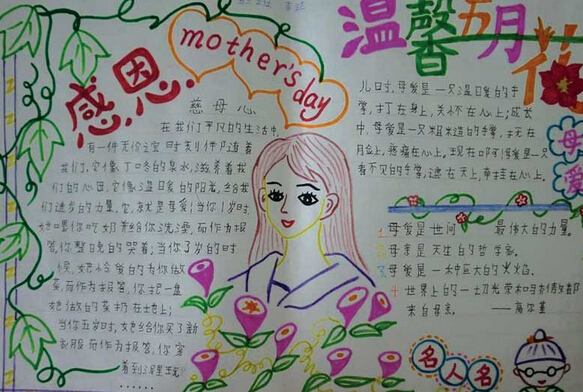 感恩
mother's day
温馨五月花
慈母心
在我们平凡的生活中,
有一件无价宝时刻伴随着
我们,它像丁冬的泉水,滋养着我
们的心田,它像温暖的阳光,给我
们进步的力量,它就是母爱;当你1岁时,
她喂你吃奶并给你洗澡,而作为报
答,你整晚的哭着;当你3岁的时
候,她怜爱的为你做
菜,而作为报答,你把一盘
她做的菜扔在地上;
当你五岁时,她给你买了新
衣服,而作为报答,你穿
着到泥里玩
……
儿时,母爱是一只温暖的手
掌,打在身上,关怀在心上;成长
中,母爱是一只粗糙的手掌,抚在
脸上,疼痛在心上。现在,母爱是一只
看不见的手掌,远在天上,牵挂在心上。
1 母爱是世间最伟大的力量。
2 母亲是天生的哲学家。
3 母爱是一种巨大的火焰。
4 世界上的一切光荣和骄傲都
来自母亲。——高尔基
母爱
名人名